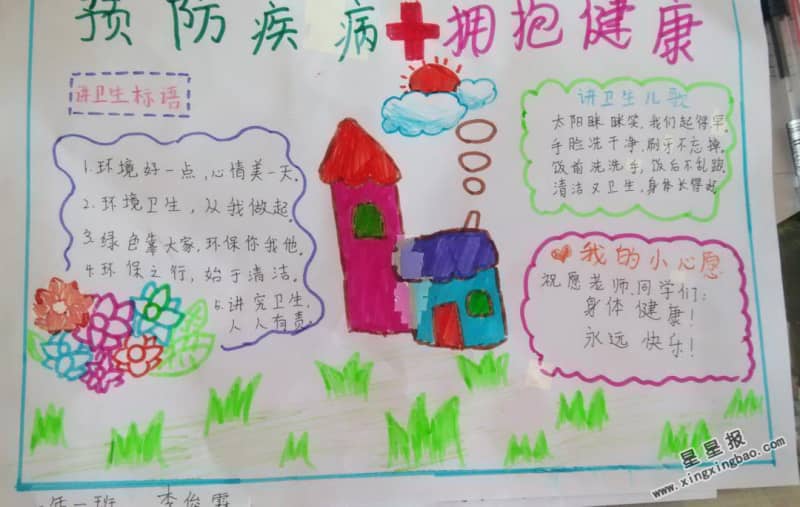 预防疾病✚拥抱健康
讲卫生标语
1.环境好一点,心情美一天.
2.环境卫生,从我做起.
3.绿色靠大家.环保你我他.
4.环保之行,始于清洁.
5.讲究卫生.
人人有责.
讲卫生儿歌
太阳眯眯笑,我们起得早.
手脸洗干净,刷牙不忘掉.
饭前洗洗手,饭后不乱跑.
清洁又卫生,身体长得好.
我的小心愿
祝愿老师.同学们:
身体健康!
永远快乐!
年一班 李俊霖
星星报
www.xingxingbao.com